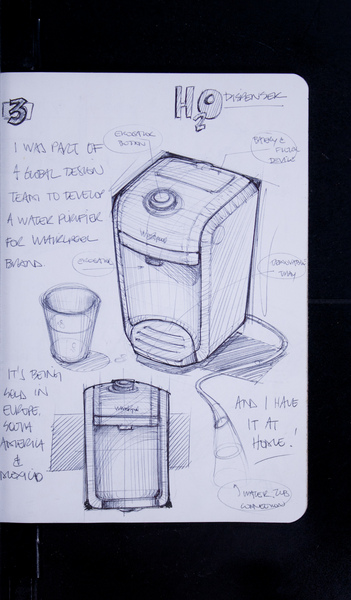 3
H2O DISPENSER
I WAS PART OF
A GLOBAL DESIGN
TEAM TO DEVELOP
A WATER PURIFIER
FOR WHIRLPOOL
BRAND.
BUTTON
FILTER
DEVICE
TRAY
Whirlpool
IT'S BEING
SOLD IN
EUROPE,
SOUTH
AMERICA
&
MEXICO
AND I HAVE
IT AT
HOME!
WATER TUB
CONNECTION